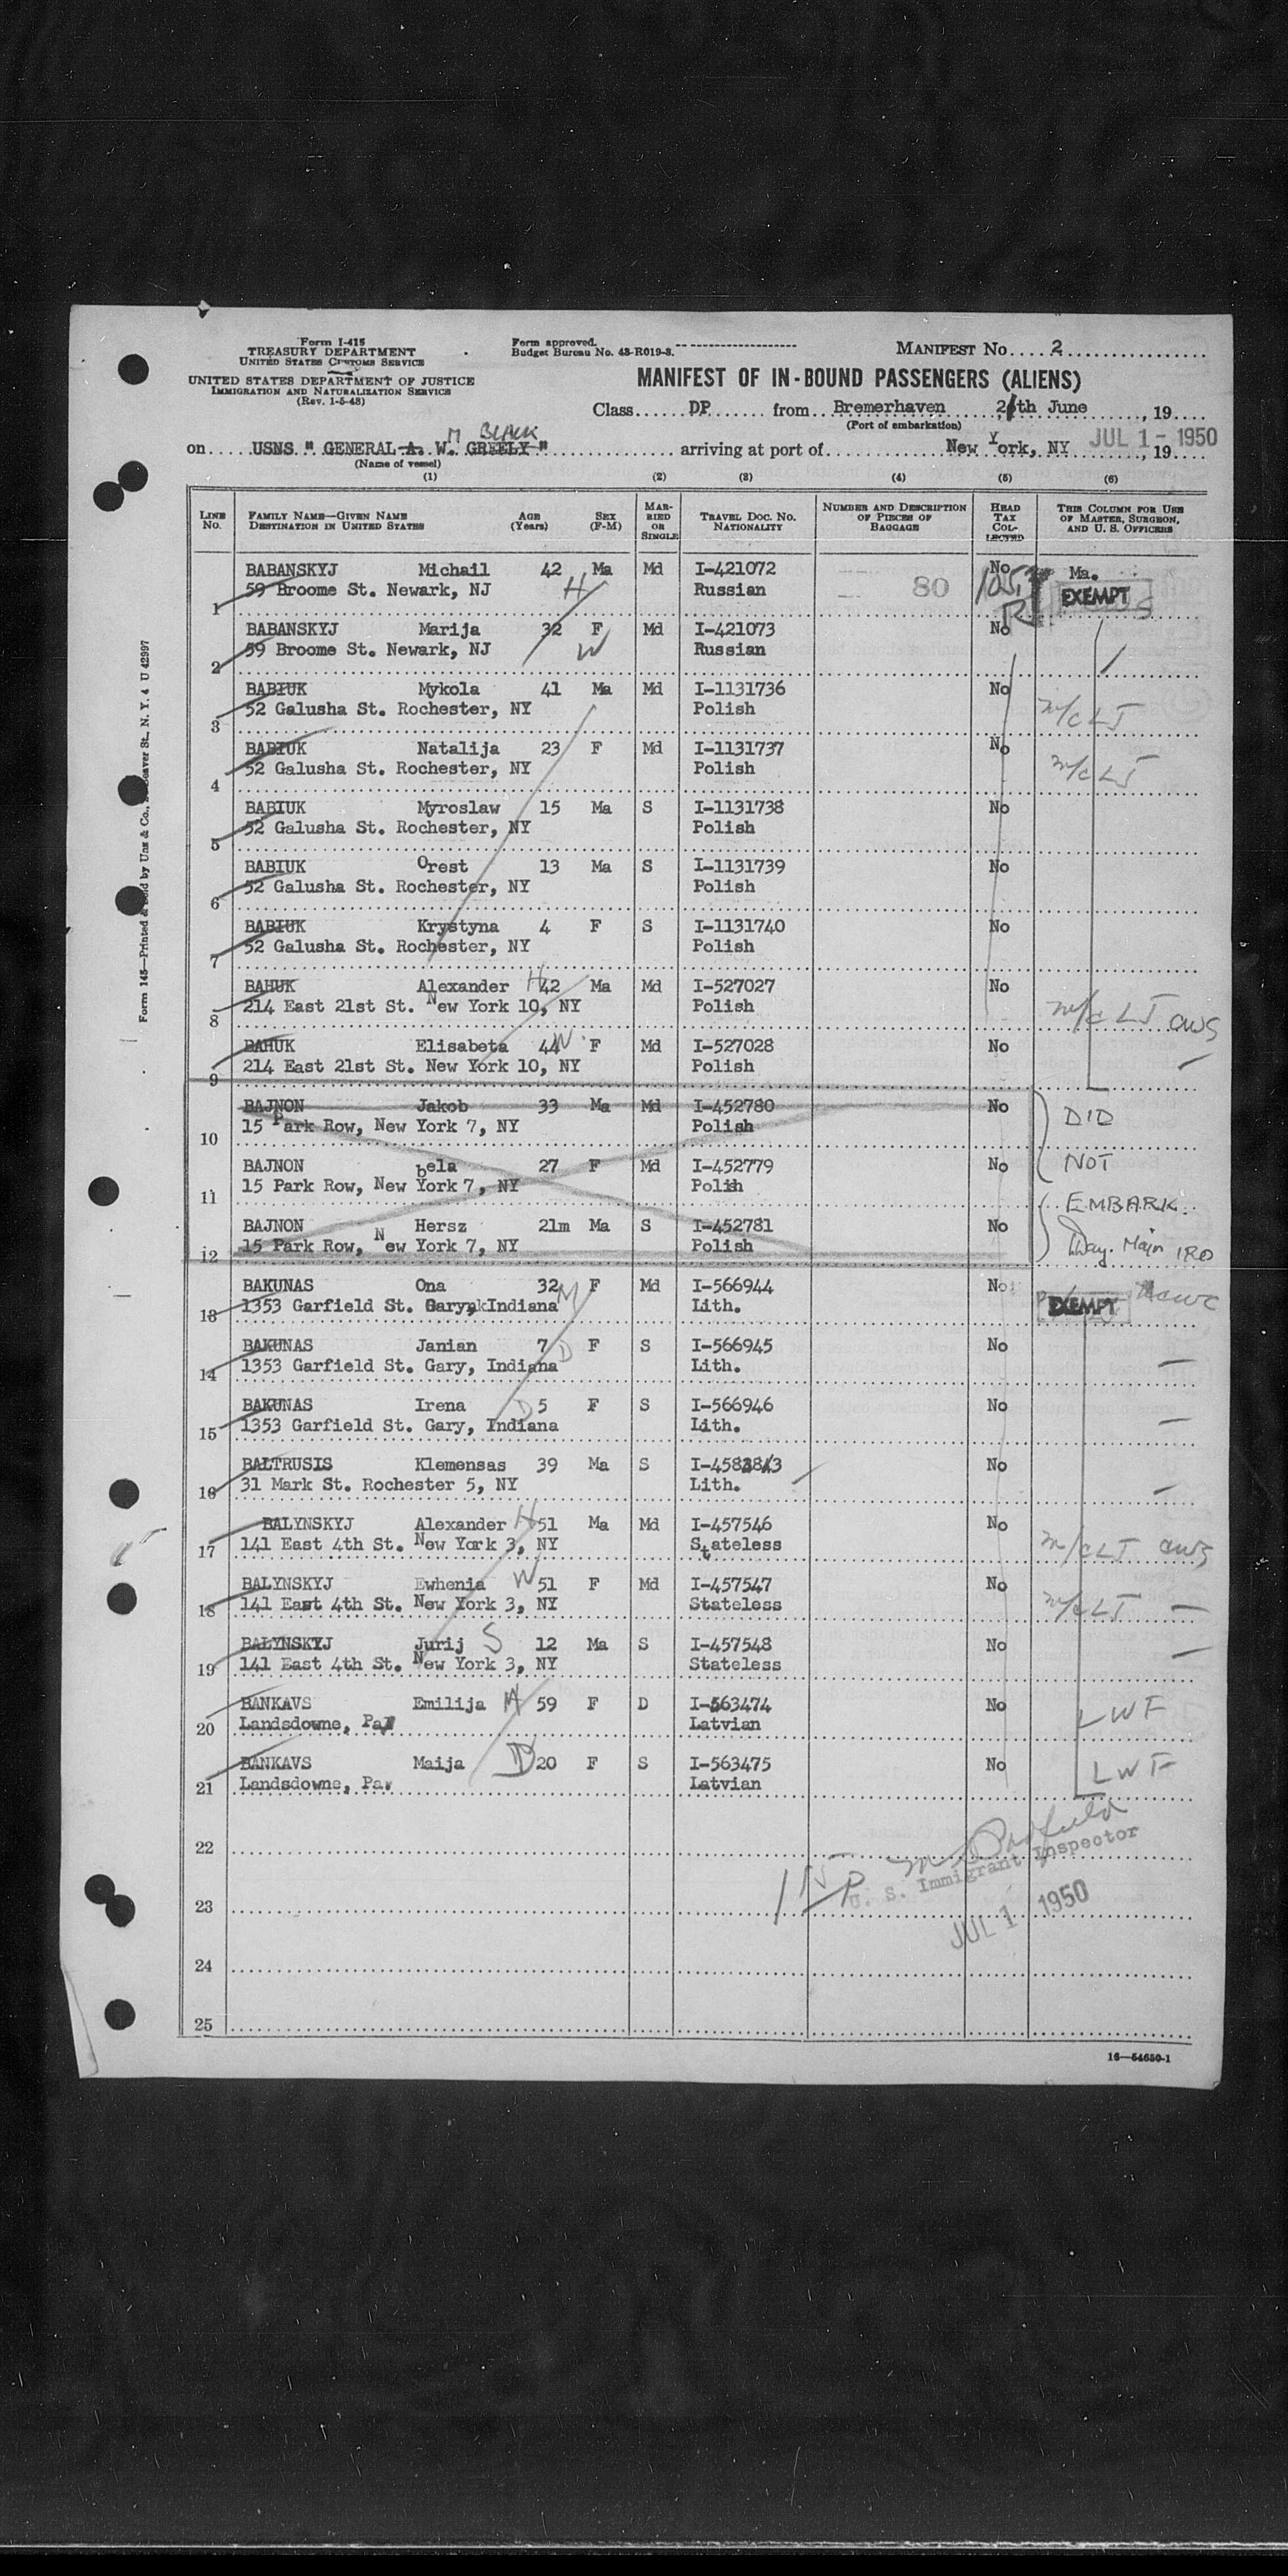 Form I-415
TREASURY DEPARTMENT
UNITED STATES CUSTOMS SERVICE
UNITED STATES DEPARTMENT OF JUSTICE
IMMIGRATION AND NATURALIZATION SERVICE
(Rev. 1-5-48)
Form approved.
Budget Bureau No. 43-R019-3.
MANIFEST No. 2
MANIFEST OF IN-BOUND PASSENGERS (ALIENS)
Class DP from Bremerhaven th June, 19
(Port of embarkation)
M BLACK
on USNS " GENERAL A. W. GREELY " arriving at port of New York, NY JUL 1 - 1950, 19
(Name of vessel)
(1) (2) (3) (4) (5) (6)
LINE No. FAMILY NAME—GIVEN NAME DESTINATION IN UNITED STATES AGE (Years) SEX (F-M) MARRIED OR SINGLE TRAVEL DOC. NO. NATIONALITY NUMBER AND DESCRIPTION OF PIECES OF BAGGAGE HEAD TAX COLLECTED THIS COLUMN FOR USE OF MASTER, SURGEON, AND U. S. OFFICERS
BABANSKYJ Michail 42 Ma Md I-421072 No Ma.
1 59 Broome St. Newark, NJ H Russian 80 EXEMPT
BABANSKYJ Marija 32 F Md I-421073 No
2 59 Broome St. Newark, NJ W Russian
BABIUK Mykola 41 Ma Md I-1131736 No
3 52 Galusha St. Rochester, NY Polish m/c LJ
BABIUK Natalija 23 F Md I-1131737 No
4 52 Galusha St. Rochester, NY Polish m/c LJ
BABIUK Myroslaw 15 Ma S I-1131738 No
5 52 Galusha St. Rochester, NY Polish
BABIUK Orest 13 Ma S I-1131739 No
6 52 Galusha St. Rochester, NY Polish
BABIUK Krystyna 4 F S I-1131740 No
7 52 Galusha St. Rochester, NY Polish
BAHUK Alexander H 42 Ma Md I-527027 No
8 214 East 21st St. New York 10, NY Polish m/c LJ aws
BAHUK Elisabeta 44 W F Md I-527028 No
9 214 East 21st St. New York 10, NY Polish
BAJNON Jakob 33 Ma Md I-452780 No DID
10 15 Park Row, New York 7, NY Polish
BAJNON bela 27 F Md I-452779 No NOT
11 15 Park Row, New York 7, NY Polish
EMBARK.
BAJNON Hersz 21m Ma S I-452781 No
12 15 Park Row, New York 7, NY Polish IRO
BAKUNAS Ona 32 M F Md I-566944 No
13 1353 Garfield St. Gary, Indiana Lith. EXEMPT
BAKUNAS Janian 7 D F S I-566945 No
14 1353 Garfield St. Gary, Indiana Lith.
BAKUNAS Irena D 5 F S I-566946 No
15 1353 Garfield St. Gary, Indiana Lith.
BALTRUSIS Klemensas 39 Ma S No
16 31 Mark St. Rochester 5, NY Lith.
BALYNSKYJ Alexander H 51 Ma Md I-457546 No
17 141 East 4th St. New York 3, NY Stateless m/c LJ aws
BALYNSKYJ Ewhenia W 51 F Md I-457547 No
18 141 East 4th St. New York 3, NY Stateless m/c LJ
BALYNSKYJ Jurij S 12 Ma S I-457548 No
19 141 East 4th St. New York 3, NY Stateless
BANKAVS Emilija M 59 F D I-563474 No
20 Landsdowne, Pa Latvian LWF
BANKAVS Maija D 20 F S I-563475 No
21 Landsdowne, Pa. Latvian LWF
22
U. S. Immigrant Inspector
23
JUL 1 1950
24
25
16—54650-1
Form 145—Printed & Sold by Unz & Co., Beaver St., N. Y. 4 U 42997